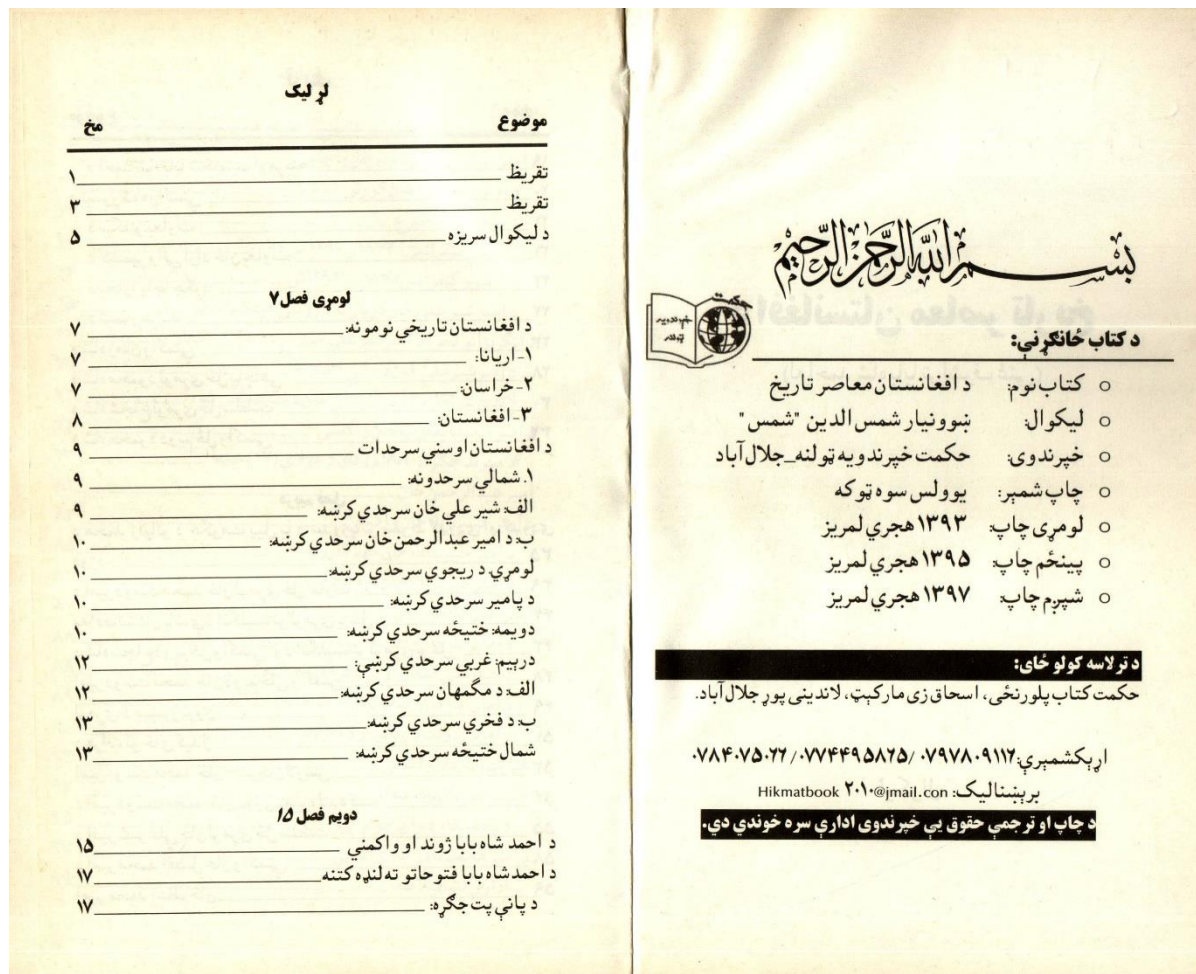 بسم الله الرحمن الرحيم
حکمت
خپرندويه
ټولنه
د کتاب ځانګړنې:
○ کتاب نوم: د افغانستان معاصر تاريخ
○ ليکوال: ښوونيار شمس الدين "شمس"
○ خپرندوی: حکمت خپرندويه ټولنه_جلال آباد
○ چاپ شمېر: يوولس سوه ټوکه
○ لومړی چاپ: ۱۳۹۳ هجري لمريز
○ پينځم چاپ: ۱۳۹۵ هجري لمريز
○ شپږم چاپ: ۱۳۹۷ هجري لمريز
د ترلاسه کولو ځای:
حکمت کتاب پلورنځی، اسحاق زی مارکېټ، لاندينی پوړ جلال آباد.
اړېکشمېرې: ۰۷۹۷۸۰۹۱۱۲ /۰۷۷۴۴۹۵۸۲۵ /۰۷۸۴۰۷۵۰۲۲
برېښناليک: Hikmatbook ۲۰۱۰@jmail.con
د چاپ او ترجمې حقوق يې خپرندوی ادارې سره خوندي دي.
لړ ليک
موضوع مخ
تقريظ ۱
تقريظ ۳
د ليکوال سريزه ۵
لومړی فصل ۷
د افغانستان تاريخي نومونه: ۷
۱- اريانا: ۷
۲- خراسان: ۷
۳- افغانستان: ۸
د افغانستان اوسني سرحدات ۹
۱. شمالي سرحدونه: ۹
الف: شير علي خان سرحدي کرښه: ۹
ب: د امير عبدالرحمن خان سرحدي کرښه: ۱۰
لومړي. د ريجوي سرحدي کرښه: ۱۰
د پامير سرحدي کرښه: ۱۰
دويمه: ختيځه سرحدي کرښه: ۱۰
درېيم: غربي سرحدي کرښې: ۱۲
الف: د مګمهان سرحدي کرښه: ۱۲
ب: د فخري سرحدي کرښه: ۱۳
شمال ختيځه سرحدي کرښه: ۱۳
دويم فصل ۱۵
د احمد شاه بابا ژوند او واکمني ۱۵
د احمدشاه بابا فتوحاتو ته لنډه کتنه ۱۷
د پاني پت جګړه: ۱۷